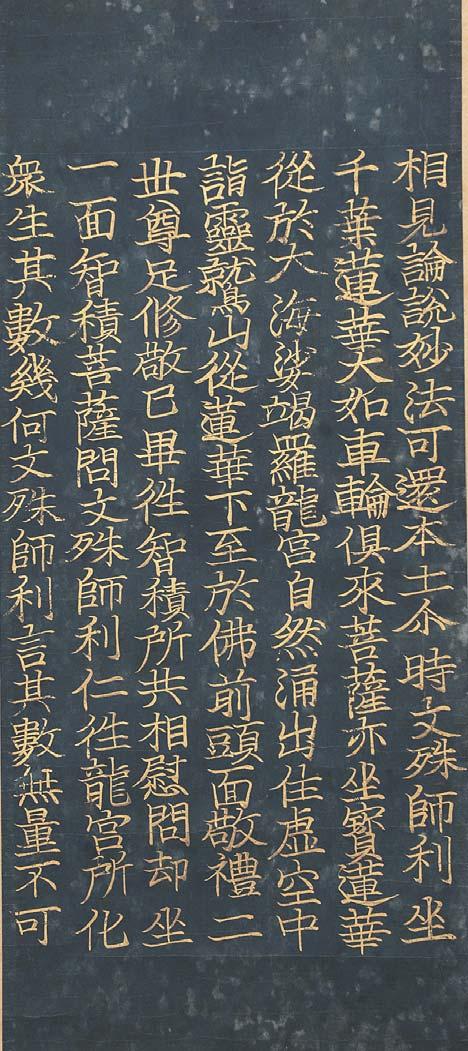 相見論説妙法可還本土尒時文殊師利坐
千葉蓮華大如車輪俱來菩薩亦坐寳蓮華
從於大海娑竭羅龍宮自然涌出住虛空中
詣靈鷲山從蓮華下至於佛前頭面敬禮二
世尊足修敬已畢徃智積所共相慰問却坐
一面智積菩薩問文殊師利仁徃龍宮所化
衆生其數幾何文殊師利言其數無量不可